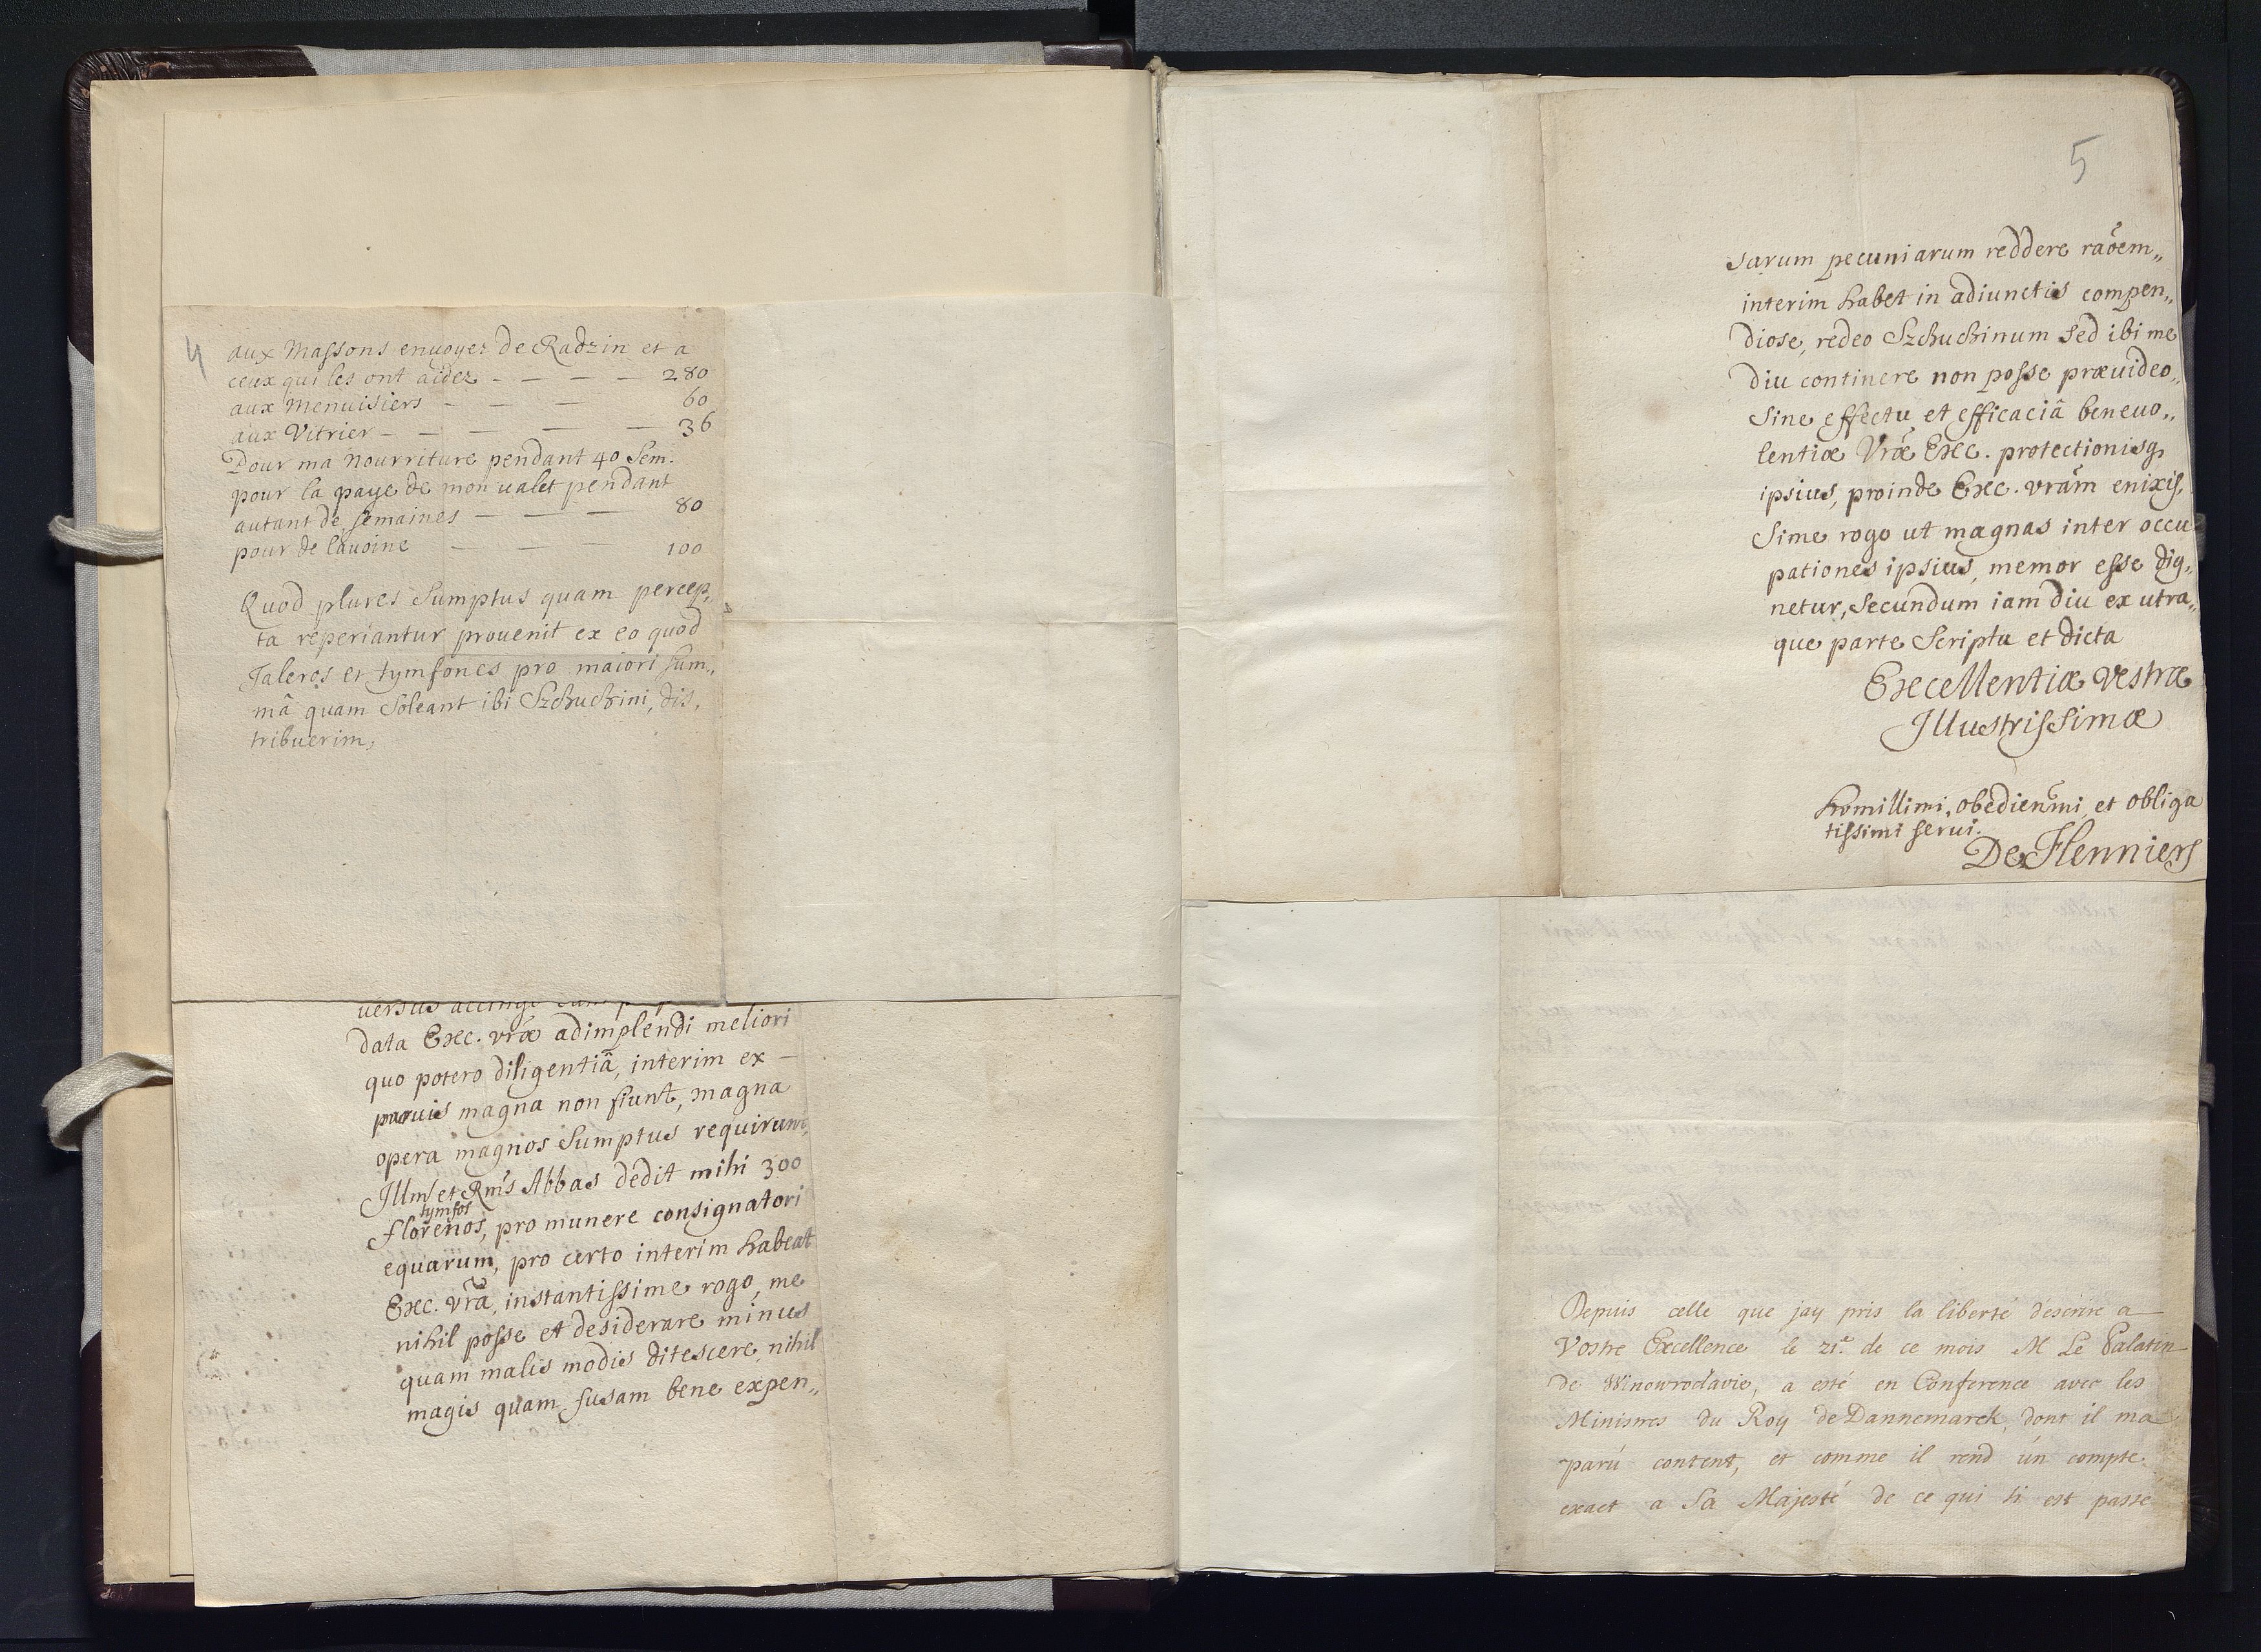 4
aux Massons enuoyez de Radzin et a
ceux qui les ont aidez - — — — 280
aux Menuisiers — — — 60
aux Vitrier - — — — — 36
Pour ma Nourriture pendant 40 Sem.
pour la paye de mon ualet pendant
autant de semaines — — — 80
pour de lauoine — — — 100
Quod plures Sumptus quam percep„
ta reperiantur prouenit ex eo quod
Taleros et tymfones pro maiori sum„
mâ quam Soleant ibi Szchuchini, dis„
tribuerim,
uersus accingo
data Exc. vræ adimplendi meliori
quo potero diligentiâ, interim ex —
paruis magna non fiunt, magna
opera magnos Sumptus requirunt,
Illm9 et Rm9s Abbas dedit mihi 300
tymfos
Florenos, pro munere consignatori
equarum, pro certo interim habeat
Exc. vrã, instantissime rogo, me
nihil posse et desiderare minus
quam malis modis ditescere, nihil
magis quam susam bene expen„
5
sarum pecuniarum reddere raõem„
interim habet in adiunctis compen„
diose, redeo Szchuchinum sed ibi me
diu continere non posse præuideo„
Sine effectu et efficaciâ beneuo„
lentiæ Vræ Exc. protectionisq,
ipsius, proinde Exc. vrãm enixis„
Sime rogo ut magnas inter occu
pationes ipsius, memor esse dig„
netur, Secundum iam diu ex utra„
que parte Scripta et dicta
Excellentiæ vestræ
Illustrissimæ
homillimi, obedien̄mi, et obliga
tissimi serui.
De Flenniers
Depuis celle que jay pris la liberté descrire a
Vostre Excellence le 21e. de ce mois M Le Palatin
de Winowroclavie, a esté en Conference avec les
Ministres du Roy de Dannemarck, dont il ma
parû content, et comme il rend ún compte
exact a Sa Majesté de ce qui si est passé